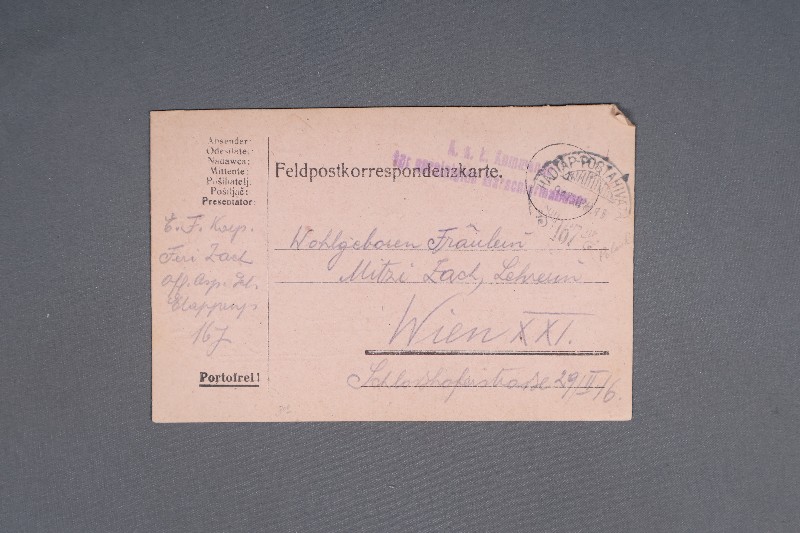 Absender:
Odesilatel:
Nadawca:
Mittente:
Pošiljatelj:
Pošiljač:
Presentator:
Feldpostkorrespondenzkarte.
k. u. k.
TÁBORI POSTAHIVATAL
167
E. F. Korp.
Feri Zach
Off. Asp.
Etappenp.
167
Portofrei!
Wohlgeboren Fräulein
Mitzi Zach, Lehrerin
Wien XXI.
Schlosshoferstrasse 29/II/6.